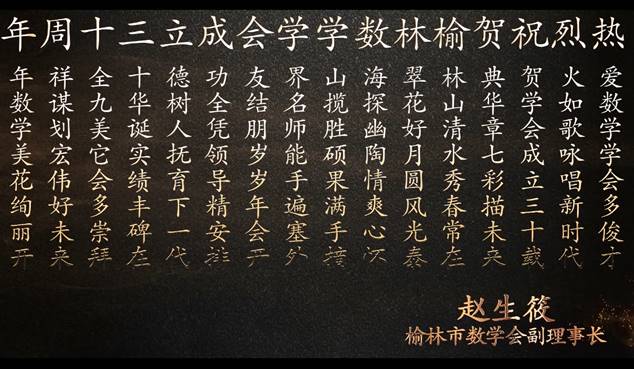 热烈祝贺榆林数学学会成立三十周年
爱数学学会多俊才
火如歌咏唱新时代
贺学会成立三十载
典华章七彩描未来
林山清水秀春常在
翠花好月圆风光泰
海探幽陶情爽心怀
山揽胜硕果满手接
界名师能手遍塞外
友结朋岁岁年会开
功全凭领导精安排
德树人抚育下一代
十华诞实绩丰碑在
全九美它会多崇拜
祥谋划宏伟好未来
年数学美花绚丽开
赵生筱
榆林市数学会副理事长